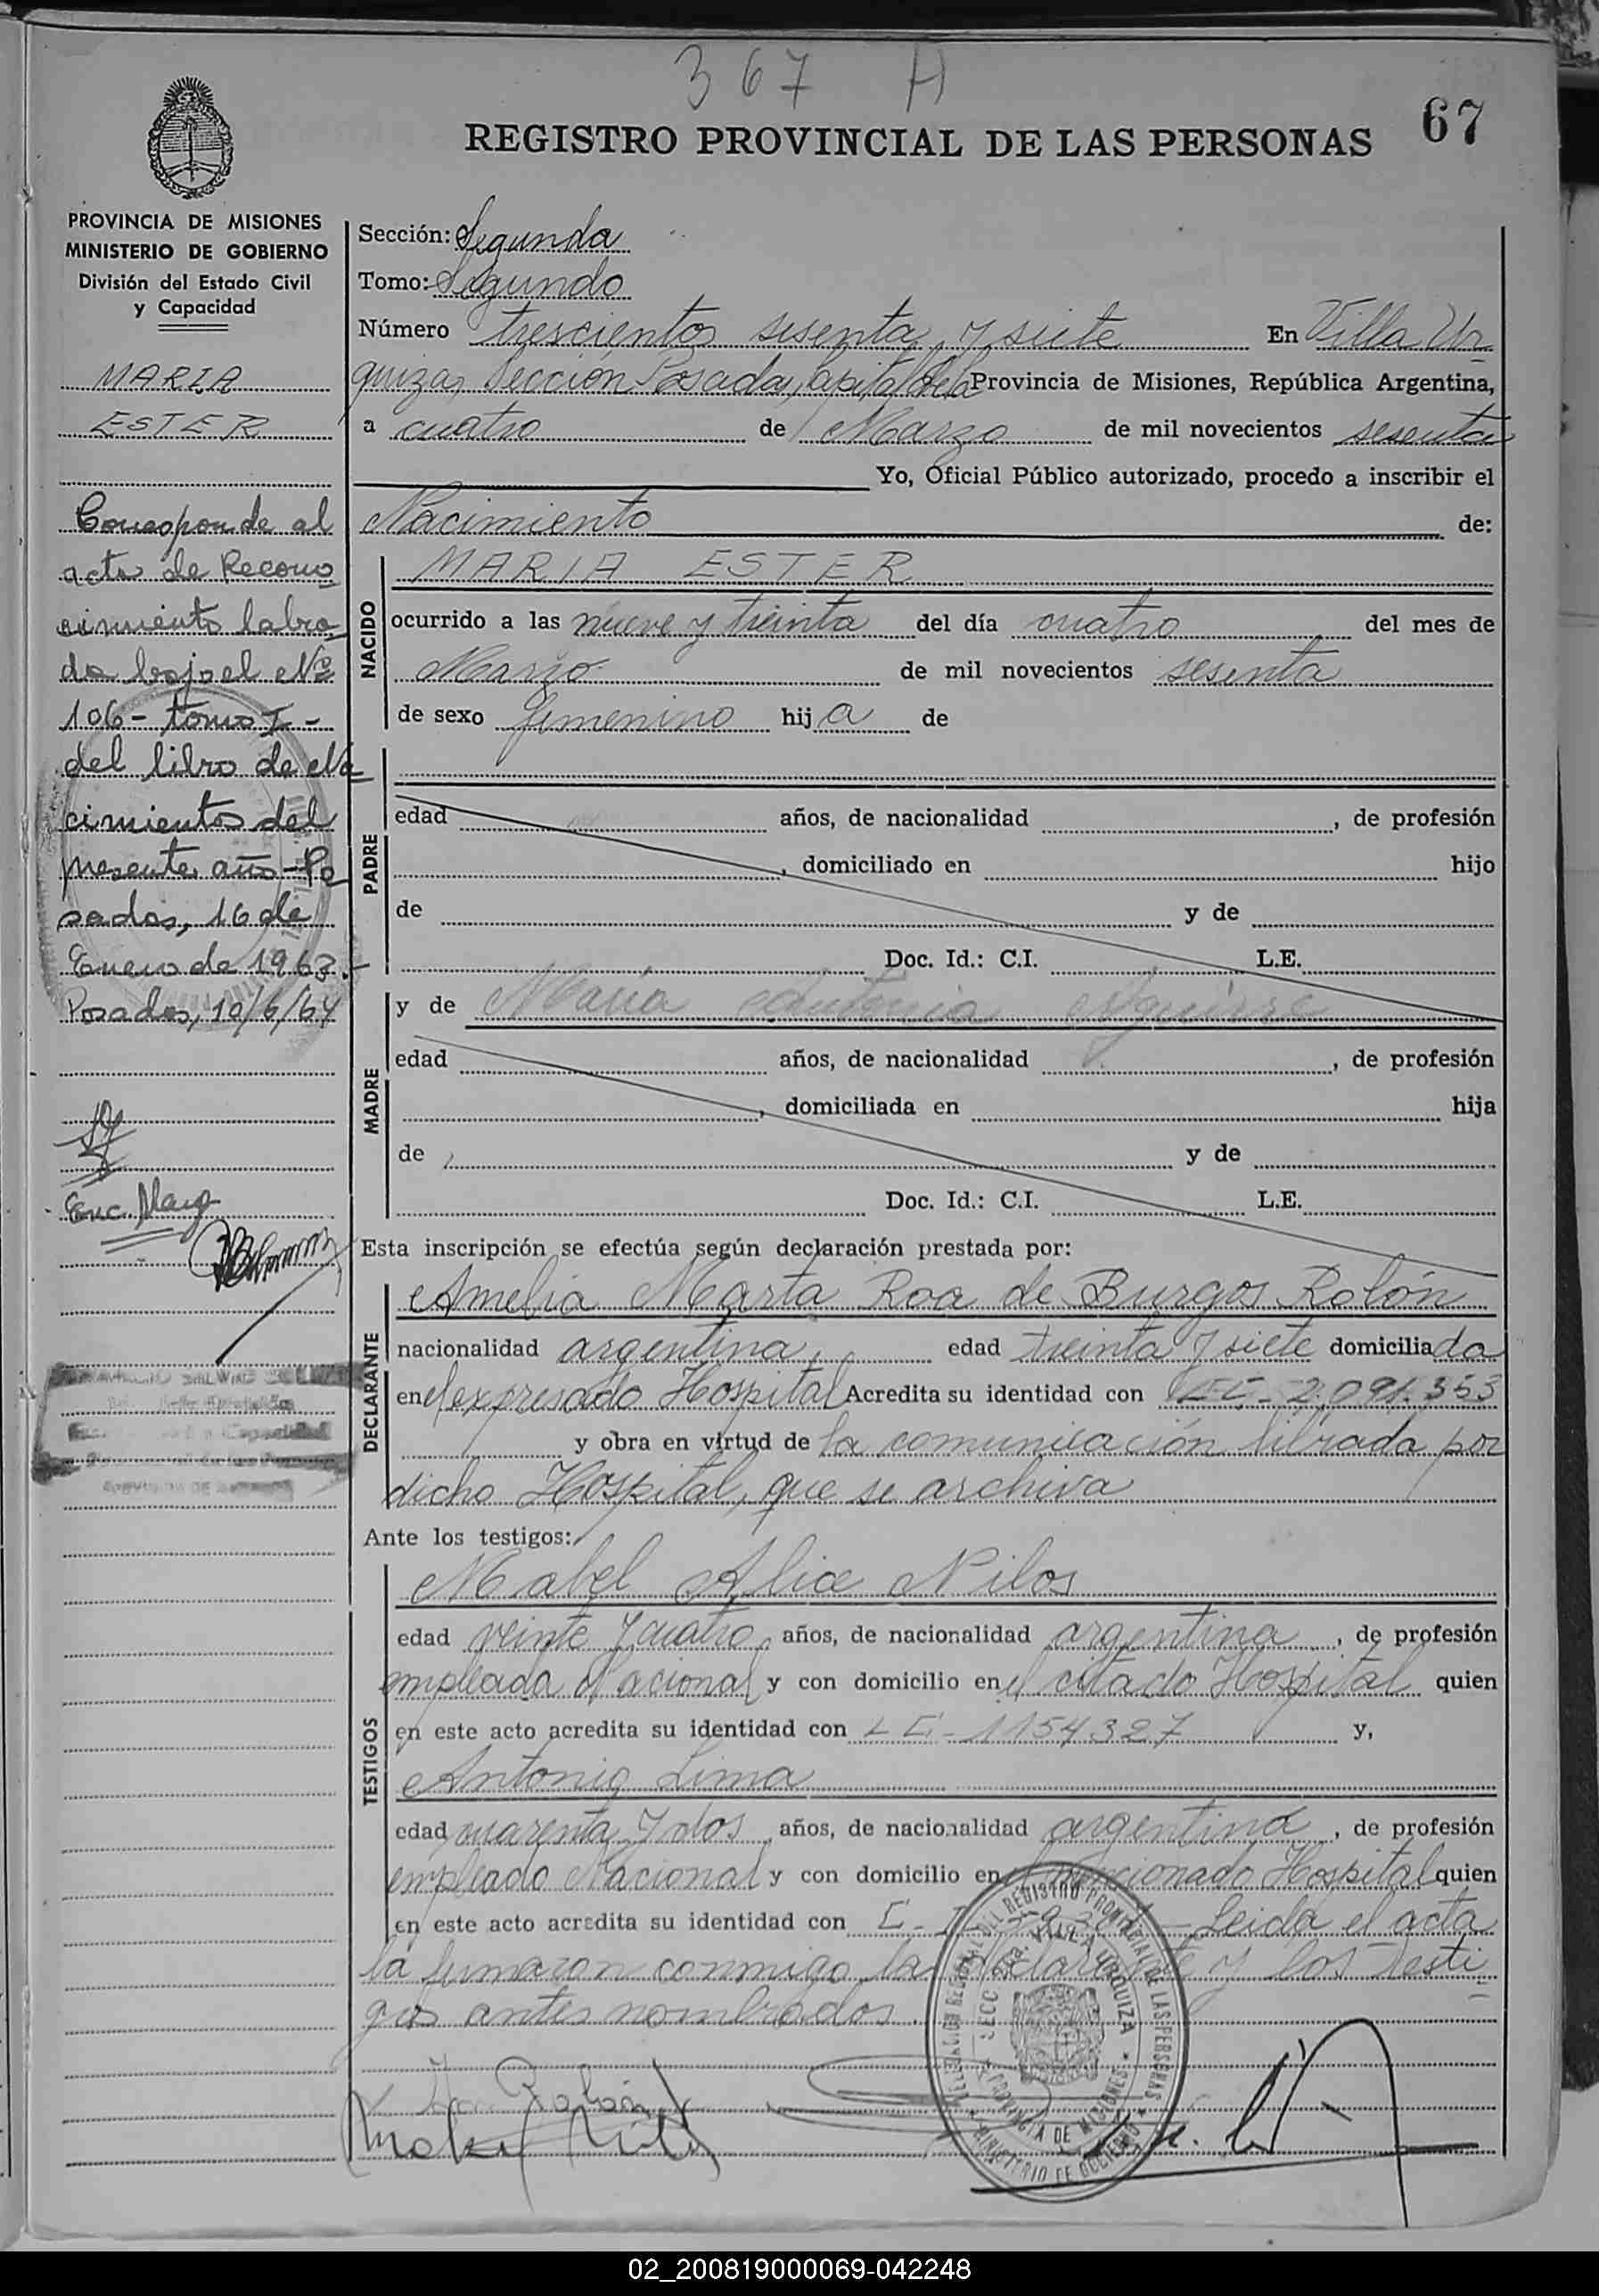 367 A
67
REGISTRO PROVINCIAL DE LAS PERSONAS
PROVINCIA DE MISIONES
MINISTERIO DE GOBIERNO
División del Estado Civil
y Capacidad
MARIA
ESTER
Corresponde al
acta de Recono
cimiento labra
da bajo el Nº
106 - tomo I -
del libro de Na
cimientos del
presente año - Po
sadas, 16 de
Enero de 1963.-
Posadas, 10/6/64
Enc. Marg
Sección: Segunda
Tomo: Segundo
Número trescientos sesenta y siete En Villa Ur
quiza, Sección Posadas, Capital de la Provincia de Misiones, República Argentina,
a cuatro de Marzo de mil novecientos sesenta
Yo, Oficial Público autorizado, procedo a inscribir el
Nacimiento de:
NACIDO
MARIA ESTER
ocurrido a las nueve y treinta del día cuatro del mes de
Marzo de mil novecientos sesenta
de sexo femenino hija de
PADRE
edad años, de nacionalidad , de profesión
, domiciliado en hijo
de y de
Doc. Id.: C.I. L.E.
MADRE
y de María Antonia Aguirre
edad años, de nacionalidad , de profesión
, domiciliada en hija
de y de
Doc. Id.: C.I. L.E.
Esta inscripción se efectúa según declaración prestada por:
DECLARANTE
Amelia Marta Roa de Burgos Rolón
nacionalidad argentina, edad treinta y siete domiciliada
en el expresado Hospital Acredita su identidad con LC - 2.091.353
y obra en virtud de la comunicación librada por
dicho Hospital, que se archiva
Ante los testigos:
TESTIGOS
Mabel Alice Nilos
edad veinte y cuatro, años, de nacionalidad argentina, de profesión
empleada Nacional y con domicilio en el citado Hospital quien
en este acto acredita su identidad con LC - 1154327 y,
Antonio Lima
edad cuarenta y dos años, de nacionalidad argentina, de profesión
empleado Nacional y con domicilio en el mencionado Hospital quien
en este acto acredita su identidad con Leida el acta
la firmaron conmigo la declarante y los testi
gos antes nombrados.
DELEGACION REGIONAL DEL REGISTRO PROVINCIAL DE LAS PERSONAS
SECC 2da. VILLA URQUIZA
PROVINCIA DE MISIONES
MINISTERIO DE GOBIERNO
02_200819000069-042248